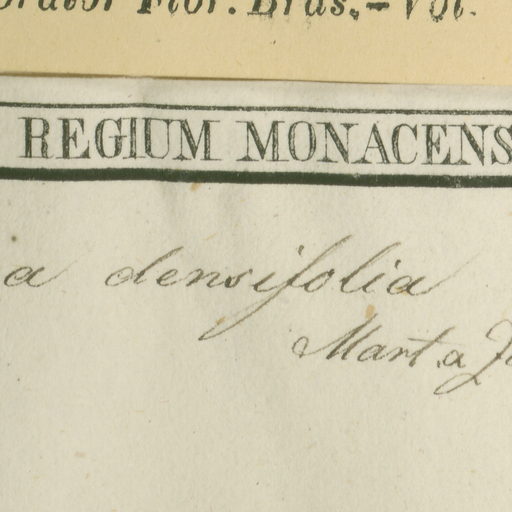 Flor. Bras.—Vol.
REGIUM MONACENS
a densifolia
Mart. a